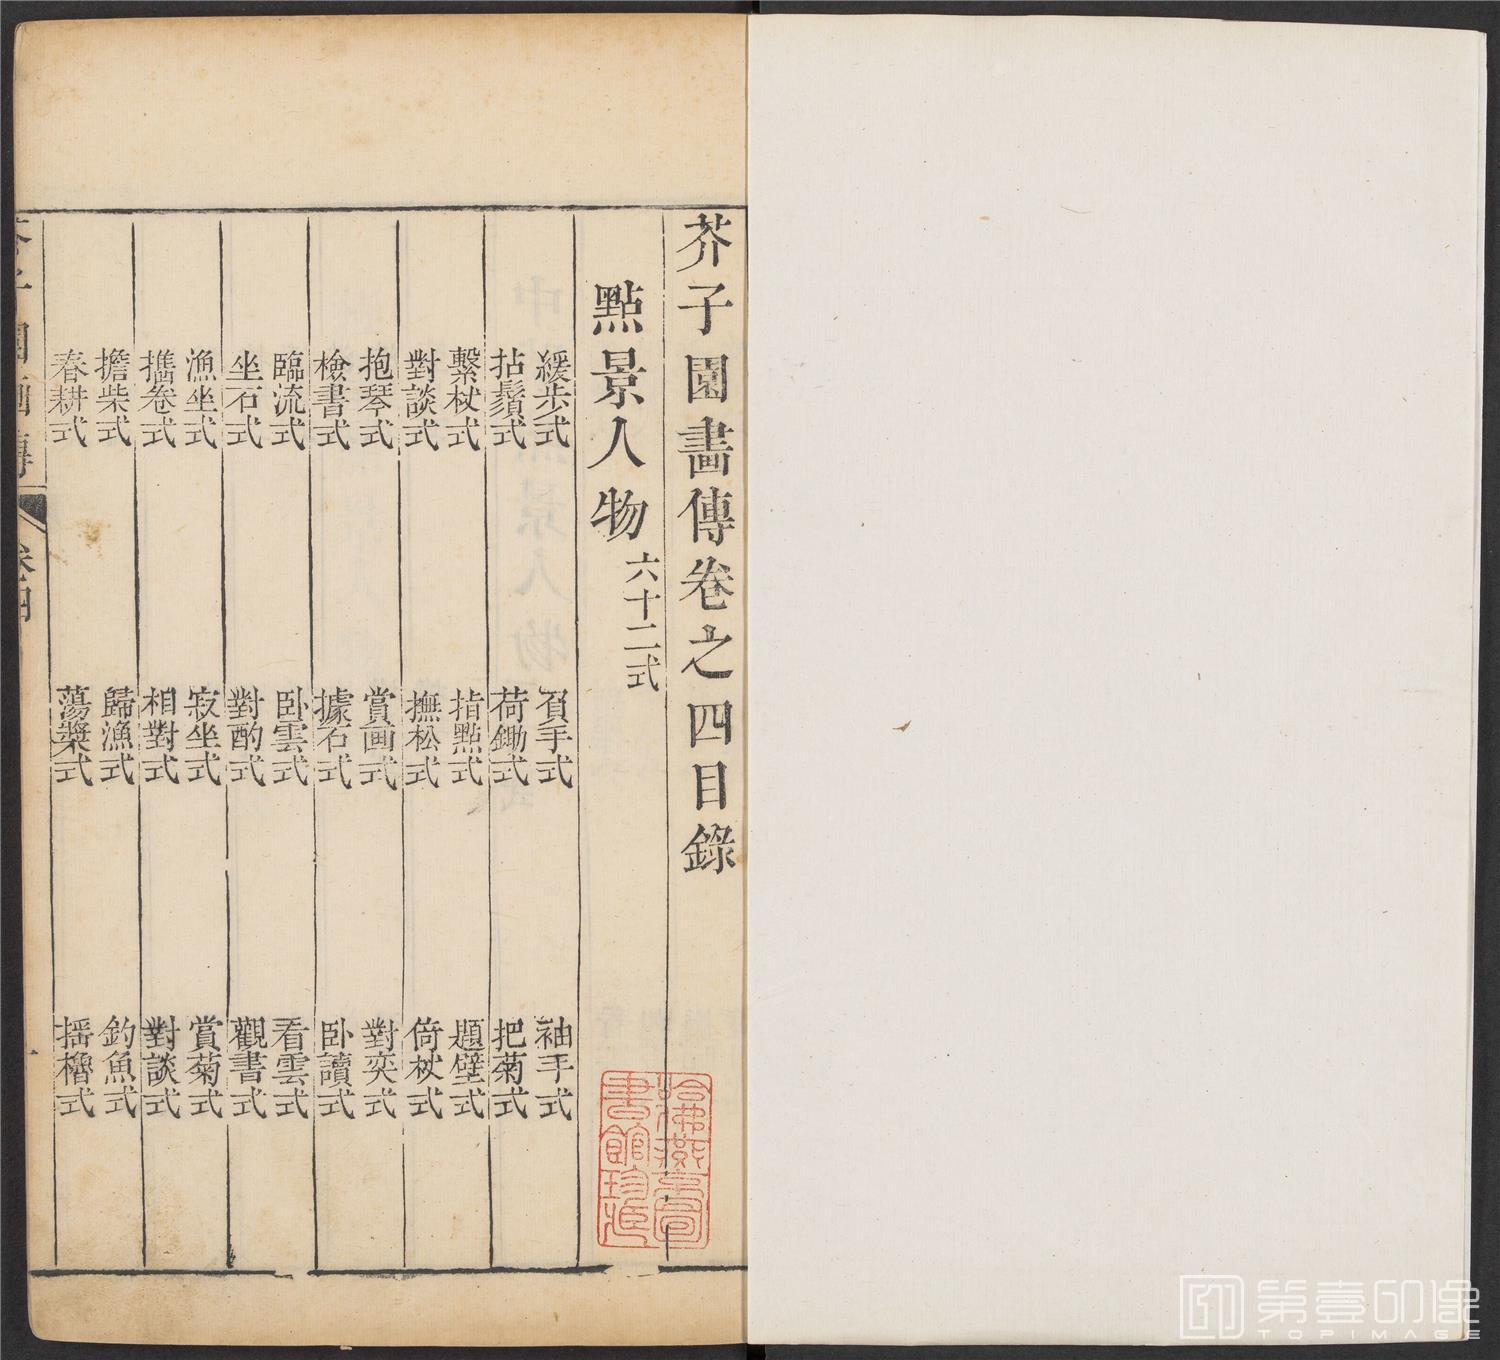 芥子園畫傳卷之四目錄
點景人物 六十二式
緩步式 負手式 袖手式
拈鬚式 荷鋤式 把菊式
繫杖式 指點式 題壁式
對談式 撫松式 倚杖式
抱琴式 賞画式 對奕式
檢書式 據石式 卧讀式
臨流式 卧雲式 看雲式
坐石式 對酌式 觀書式
漁坐式 寂坐式 賞菊式
攜卷式 相對式 對談式
擔柴式 歸漁式 釣魚式
春耕式 蕩槳式 揺櫓式
芥子園畫傳 卷四 一
哈佛燕京圖
書館珍藏
第壹印像
TOPIMAGE